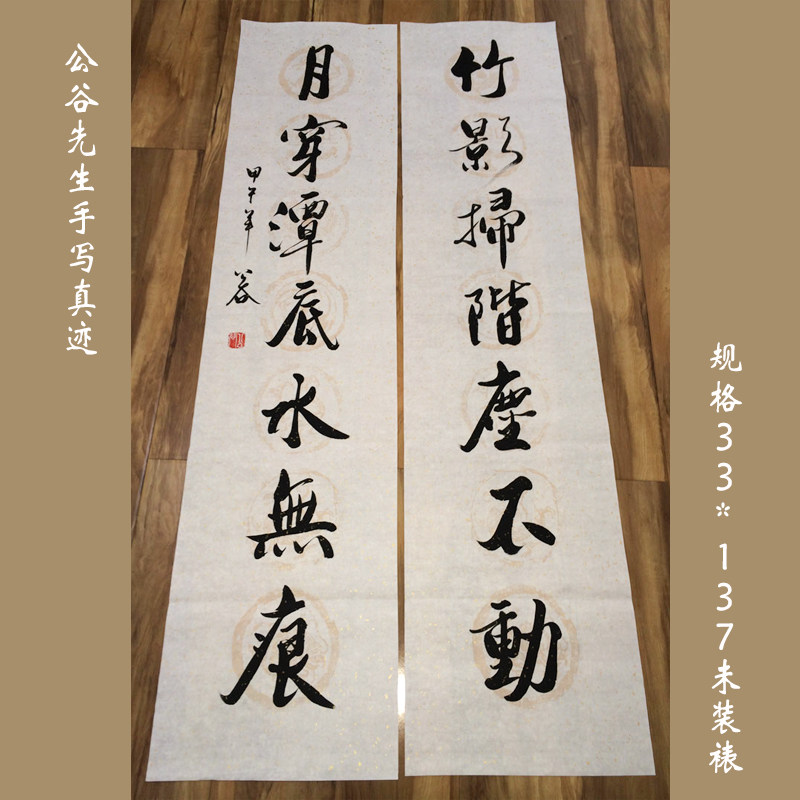 公谷先生手写真迹
竹影掃階塵不動
月穿潭底水無痕
甲午年
规格33*137未装裱